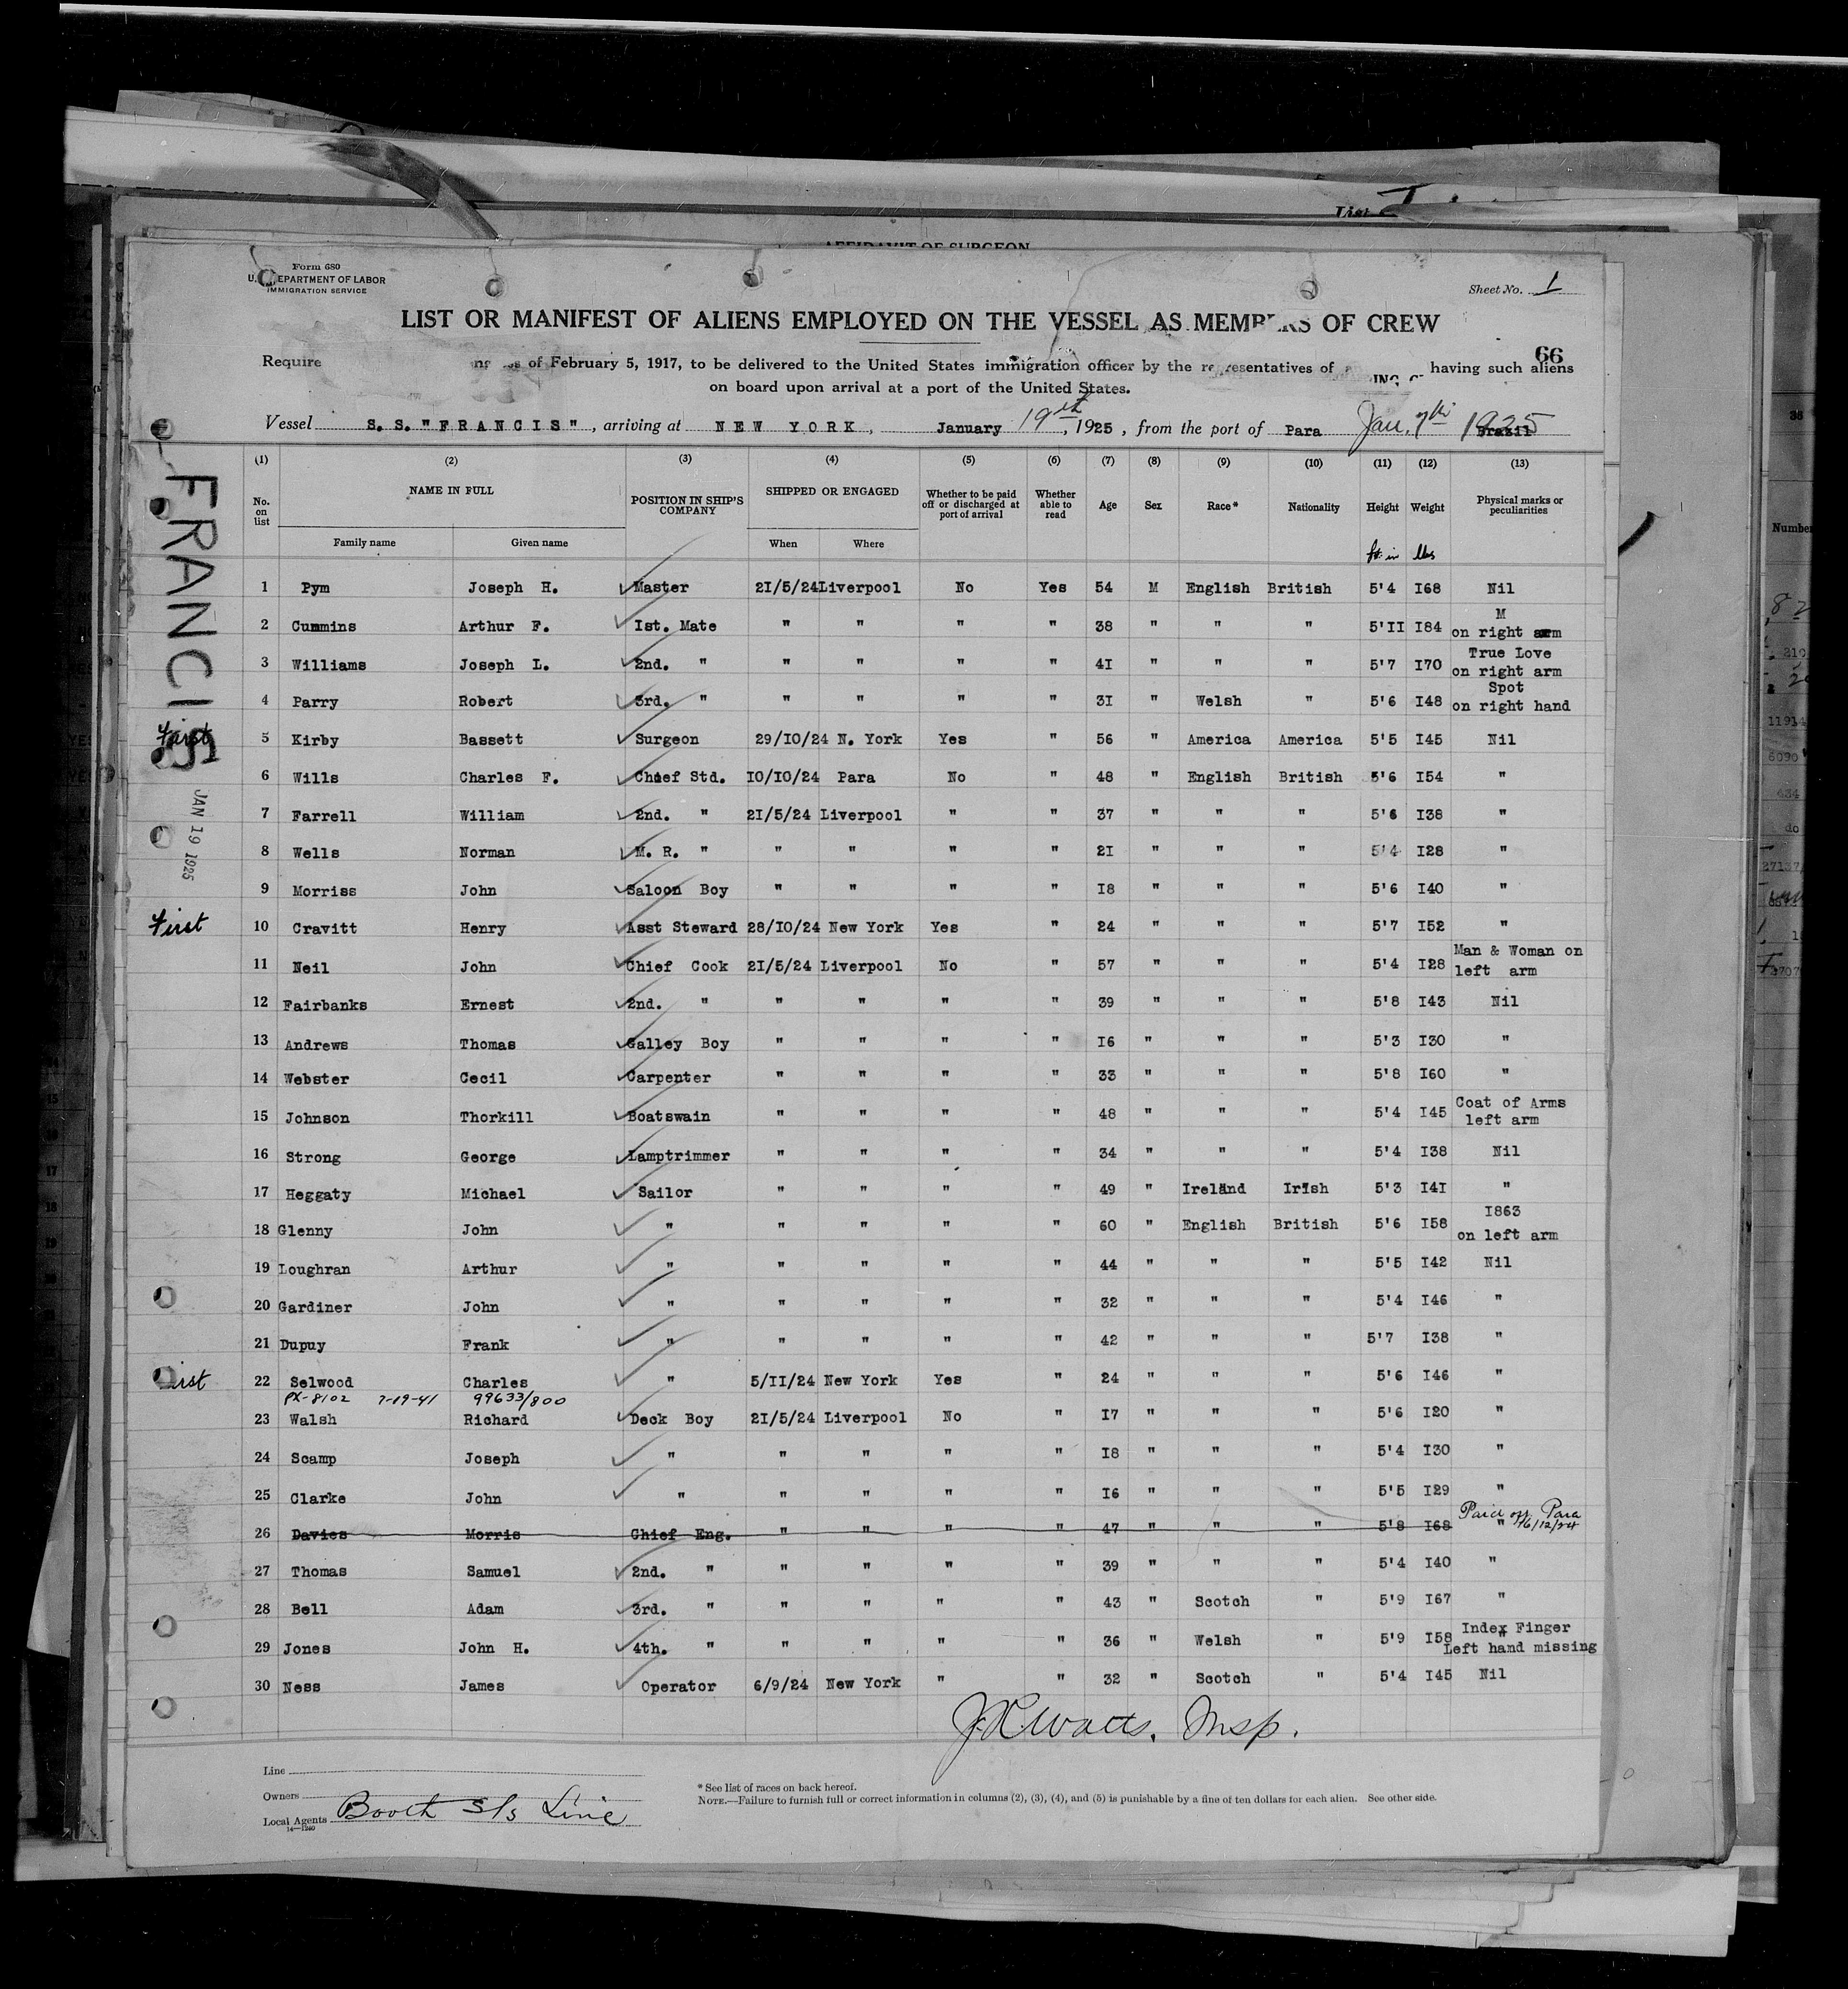 List
AFFIDAVIT OF SURGEON
Form 680
U. S. DEPARTMENT OF LABOR
IMMIGRATION SERVICE
Sheet No. 1
LIST OR MANIFEST OF ALIENS EMPLOYED ON THE VESSEL AS MEMBERS OF CREW
66
Require of February 5, 1917, to be delivered to the United States immigration officer by the representatives of having such aliens
on board upon arrival at a port of the United States.
Vessel S. S. "FRANCIS", arriving at NEW YORK, January 19th, 1925, from the port of Para Brazil Jan. 7th 1925
FRANCIS
JAN 19 1925
(1) (2) (3) (4) (5) (6) (7) (8) (9) (10) (11) (12) (13)
No. on list NAME IN FULL POSITION IN SHIP'S COMPANY SHIPPED OR ENGAGED Whether to be paid off or discharged at port of arrival Whether able to read Age Sex Race* Nationality Height Weight Physical marks or peculiarities
Family name Given name When Where ft in lbs
1 Pym Joseph H. Master 21/5/24 Liverpool No Yes 54 M English British 5'4 I68 Nil
2 Cummins Arthur F. Ist. Mate " " " " 38 " " " 5'II I84 M on right arm
3 Williams Joseph L. 2nd. " " " " " 4I " " " 5'7 I70 True Love on right arm
4 Parry Robert 3rd. " " " " " 3I " Welsh " 5'6 I48 Spot on right hand
First 5 Kirby Bassett Surgeon 29/I0/24 N. York Yes " 56 " America America 5'5 I45 Nil
6 Wills Charles F. Chief Std. I0/I0/24 Para No " 48 " English British 5'6 I54 "
7 Farrell William 2nd. " 2I/5/24 Liverpool " " 37 " " " 5'6 I38 "
8 Wells Norman M. R. " " " " " 2I " " " 5'4 I28 "
9 Morriss John Saloon Boy " " " " I8 " " " 5'6 I40 "
First 10 Cravitt Henry Asst Steward 28/I0/24 New York Yes " 24 " " " 5'7 I52 "
11 Neil John Chief Cook 2I/5/24 Liverpool No " 57 " " " 5'4 I28 Man & Woman on left arm
12 Fairbanks Ernest 2nd. " " " " " 39 " " " 5'8 I43 Nil
13 Andrews Thomas Galley Boy " " " " I6 " " " 5'3 I30 "
14 Webster Cecil Carpenter " " " " 33 " " " 5'8 I60 "
15 Johnson Thorkill Boatswain " " " " 48 " " " 5'4 I45 Coat of Arms left arm
16 Strong George Lamptrimmer " " " " 34 " " " 5'4 I38 Nil
17 Heggaty Michael Sailor " " " " 49 " Ireland Irish 5'3 I4I "
18 Glenny John " " " " " 60 " English British 5'6 I58 I863 on left arm
19 Loughran Arthur " " " " " 44 " " " 5'5 I42 Nil
20 Gardiner John " " " " " 32 " " " 5'4 I46 "
21 Dupuy Frank " " " " " 42 " " " 5'7 I38 "
First 22 Selwood Charles " 5/II/24 New York Yes " 24 " " " 5'6 I46 "
PX-8102 7-29-41 99633/800
23 Walsh Richard Deck Boy 2I/5/24 Liverpool No " I7 " " " 5'6 I20 "
24 Scamp Joseph " " " " " I8 " " " 5'4 I30 "
25 Clarke John " " " " " I6 " " " 5'5 I29 "
26 Davies Morris Chief Eng. " " " " 47 " " " 5'8 I68 " Paid off Para 16/12/24
27 Thomas Samuel 2nd. " " " " " 39 " " " 5'4 I40 "
28 Bell Adam 3rd. " " " " " 43 " Scotch " 5'9 I67 "
29 Jones John H. 4th. " " " " " 36 " Welsh " 5'9 I58 Index Finger Left hand missing
30 Ness James Operator 6/9/24 New York " " 32 " Scotch " 5'4 I45 Nil
J.R. Watts, Insp.
Line
Owners
Local Agents Booth S/S Line
14—1240
* See list of races on back hereof.
NOTE.—Failure to furnish full or correct information in columns (2), (3), (4), and (5) is punishable by a fine of ten dollars for each alien. See other side.
Number